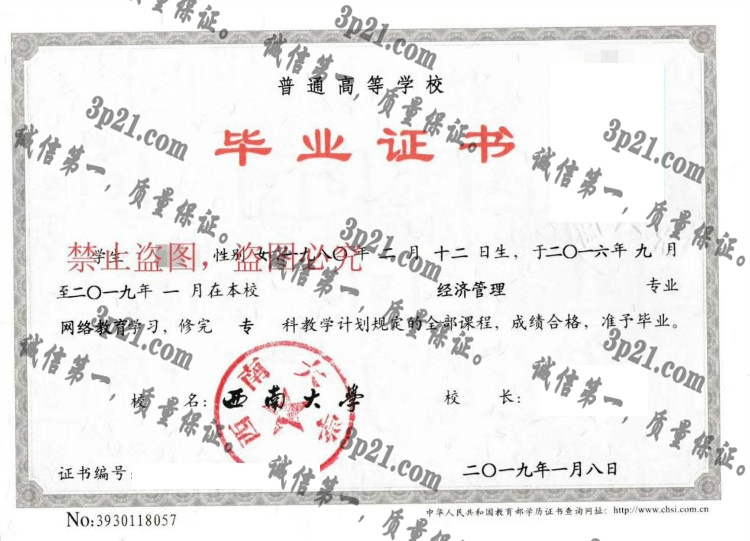 普通高等学校
毕业证书
学生 性别 女 一九八〇年 二 月 十二 日生，于二〇一六年 九 月
禁止盗图，盗图必究
至二〇一九年 一 月在本校 经济管理 专业
网络教育学习，修完 专 科教学计划规定的全部课程，成绩合格，准予毕业。
校 名：西南大學 校 长：
西南大学
证书编号： 二〇一九年一月八日
No:3930118057 中华人民共和国教育部学历证书查询网址：http://www.chsi.com.cn
3p21.com
诚信第一，质量保证。
3p21.com
诚信第一，质量保证。
3p21.com
诚信第一，质量保证。
3p21.com
诚信第一，质量保证。
3p21.com
诚信第一，质量保证。
3p21.com
诚信第一，质量保证。
3p21.com
诚信第一，质量保证。
3p21.com
诚信第一，质量保证。